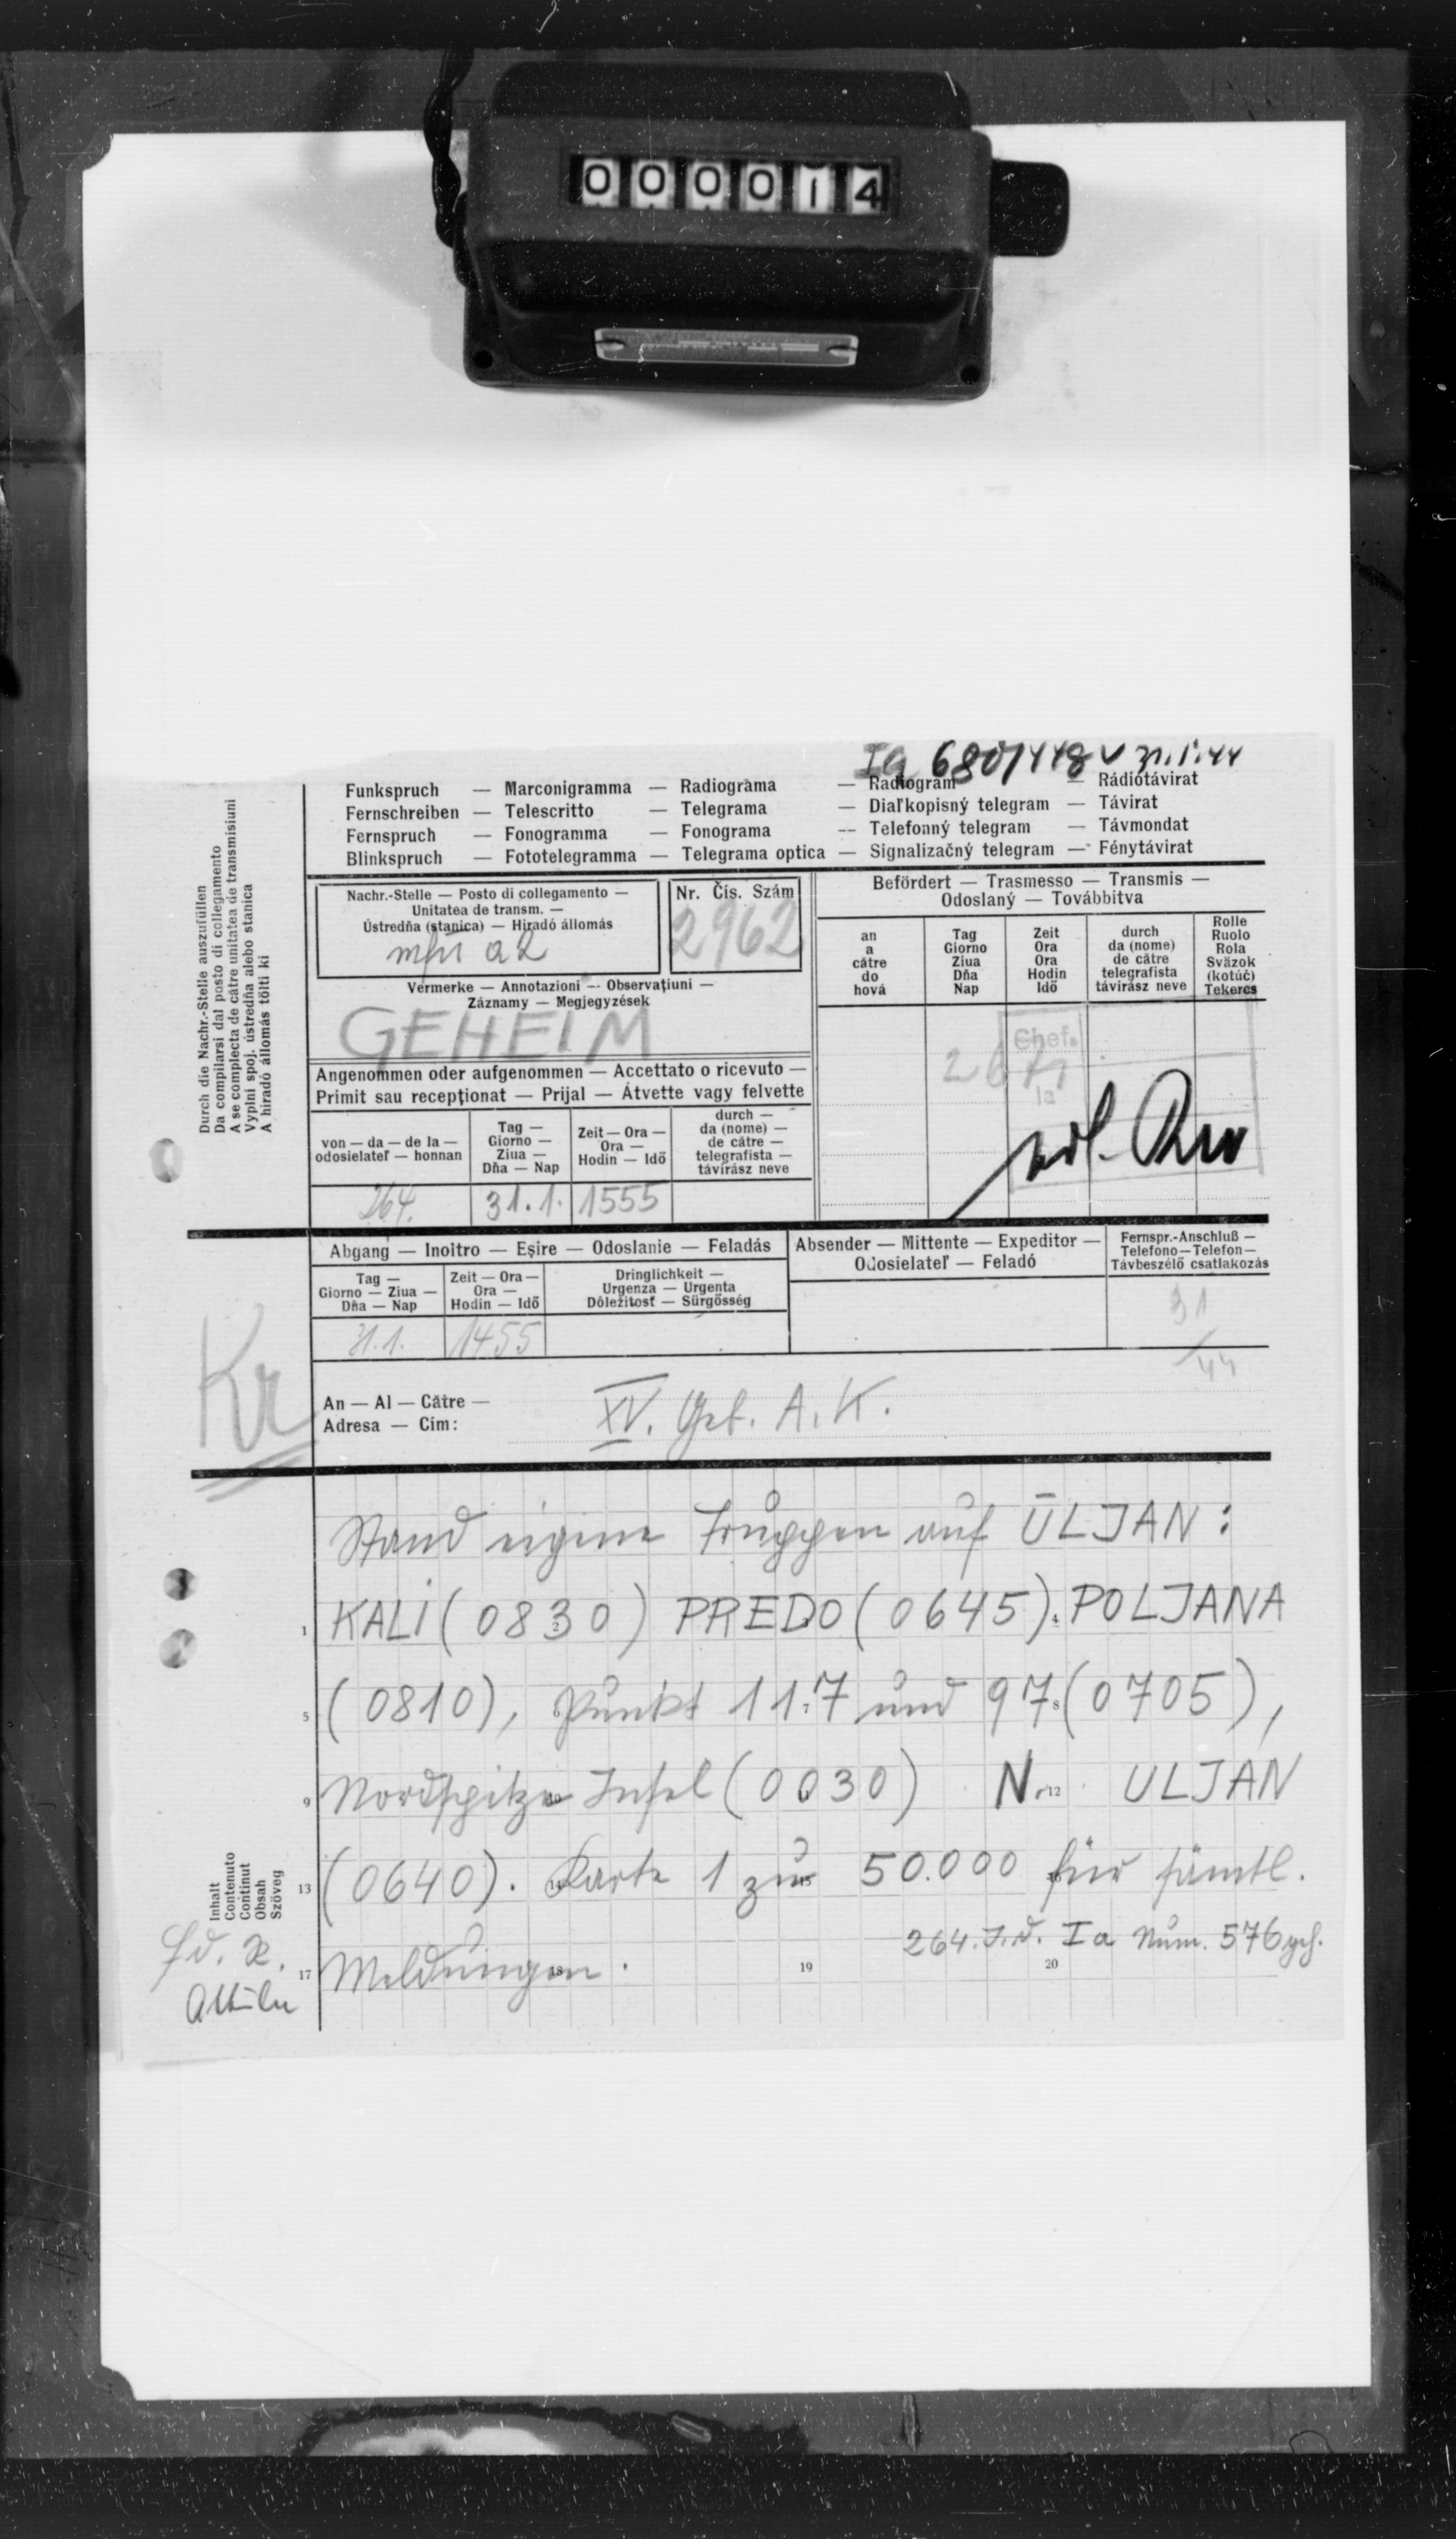 000014
Ia 680/448 v 31.1.44
Funkspruch — Marconigramma — Radiograma — Radiogram — Rádiótávirat
Fernschreiben — Telescritto — Telegrama — Diaľkopisný telegram — Távirat
Fernspruch — Fonogramma — Fonograma -- Telefonný telegram — Távmondat
Blinkspruch — Fototelegramma — Telegrama optica — Signalizačný telegram — Fénytávirat
Durch die Nachr.-Stelle auszufüllen
Da compilarsi dal posto di collegamento
A se complecta de către unitatea de transmisiuni
Vyplní spoj. ústredňa alebo stanica
A hiradó állomás tölti ki
Nachr.-Stelle — Posto di collegamento —
Unitatea de transm. —
Ústredňa (stanica) — Hiradó állomás
Nr. Čís. Szám
2962
Vermerke — Annotazioni -- Observațiuni —
Záznamy — Megjegyzések
GEHEIM
Befördert — Trasmesso — Transmis —
Odoslaný — Továbbitva
an
a
către
do
hová
Tag
Giorno
Ziua
Dňa
Nap
Zeit
Ora
Ora
Hodin
Idő
durch
da (nome)
de către
telegrafista
távirász neve
Rolle
Ruolo
Rola
Sväzok
(kotúč)
Tekercs
Chef.
Ia
Angenommen oder aufgenommen — Accettato o ricevuto —
Primit sau recepționat — Prijal — Átvette vagy felvette
von — da — de la —
odosielateľ — honnan
Tag —
Giorno —
Ziua —
Dňa — Nap
Zeit — Ora —
Ora —
Hodin — Idő
durch —
da (nome) —
de către —
telegrafista —
távirász neve
264. 31.1. 1555
Abgang — Inoltro — Eșire — Odoslanie — Feladás
Absender — Mittente — Expeditor —
Odosielateľ — Feladó
Fernspr.-Anschluß —
Telefono — Telefon —
Távbeszélő csatlakozás
Tag —
Giorno — Ziua —
Dňa — Nap
Zeit — Ora —
Ora —
Hodin — Idő
Dringlichkeit —
Urgenza — Urgenta
Dôležitosť — Sürgősség
31.1. 1455
31
/44
Kr
An — Al — Către —
Adresa — Cím:
XV. Geb. A. K.
Stand eigene Truppen auf ULJAN:
1 KALI (0830) PREDO (0645). POLJANA
5 (0810), Punkt 117 und 97 (0705),
9 Nordspitze Insel (0030) N. 12 ULJAN
Inhalt
Contenuto
Continut
Obsah
Szöveg
13 (0640). Karte 1 zu 50.000 für sämtl.
264. I.D. Ia Num. 576 geh.
17 Meldungen. 18 19 20